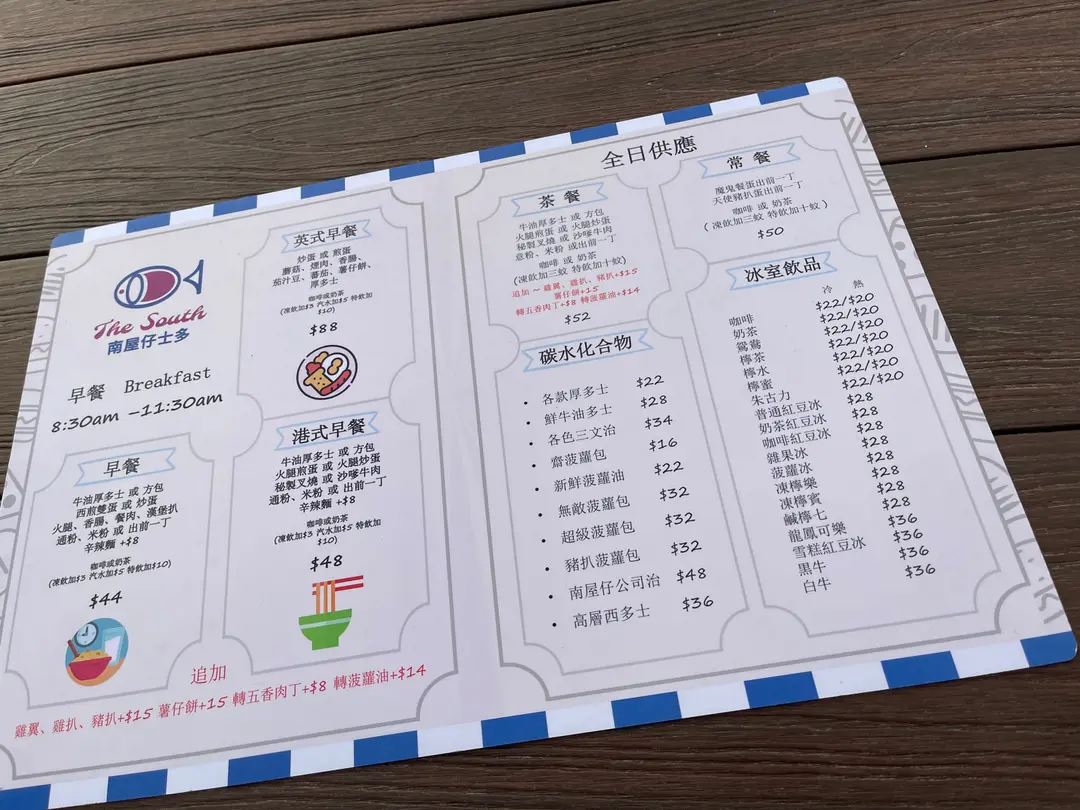 The South
南屋仔士多
早餐 Breakfast
8:30am -11:30am
早餐
牛油厚多士 或 方包
西煎雙蛋 或 炒蛋
火腿、香腸、餐肉、漢堡扒
通粉、米粉 或 出前一丁
辛辣麵 +$8
咖啡或奶茶
(凍飲加$3 汽水加$5 特飲加$10)
$44
英式早餐
炒蛋 或 煎蛋
蘑菇、煙肉、香腸、
茄汁豆、番茄、薯仔餅、
厚多士
咖啡或奶茶
(凍飲加$3 汽水加$5 特飲加
$10)
$88
港式早餐
牛油厚多士 或 方包
火腿煎蛋 或 火腿炒蛋
秘製叉燒 或 沙嗲牛肉
通粉、米粉 或 出前一丁
辛辣麵 +$8
咖啡或奶茶
(凍飲加$3 汽水加$5 特飲加
$10)
$48
追加
雞翼、雞扒、豬扒+$15 薯仔餅+15 轉五香肉丁+$8 轉菠蘿油+$14
全日供應
茶餐
牛油厚多士 或 方包
火腿煎蛋 或 火腿炒蛋
秘製叉燒 或 沙嗲牛肉
意粉、米粉 或出前一丁
咖啡 或 奶茶
(凍飲加三蚊 特飲加十蚊)
追加 ~ 雞翼、雞扒、豬扒+$15
薯仔餅+15
轉五香肉丁+$8 轉菠蘿油+$14
$52
碳水化合物
• 各款厚多士 $22
• 鮮牛油多士 $28
• 各色三文治 $34
• 齋菠蘿包 $16
• 新鮮菠蘿油 $22
• 無敵菠蘿包 $32
• 超級菠蘿包 $32
• 豬扒菠蘿包 $32
• 南屋仔公司治 $48
• 高層西多士 $36
常餐
魔鬼餐蛋出前一丁
天使豬扒蛋出前一丁
咖啡 或 奶茶
( 凍飲加三蚊 特飲加十蚊 )
$50
冰室飲品
冷 熱
咖啡 $22/$20
奶茶 $22/$20
鴛鴦 $22/$20
檸茶 $22/$20
檸水 $22/$20
檸蜜 $22/$20
朱古力 $22/$20
普通紅豆冰 $28
奶茶紅豆冰 $28
咖啡紅豆冰 $28
雜果冰 $28
菠蘿冰 $28
凍檸樂 $28
凍檸賓 $28
鹹檸七 $28
龍鳳可樂 $36
雪糕紅豆冰 $36
黑牛 $36
白牛 $36